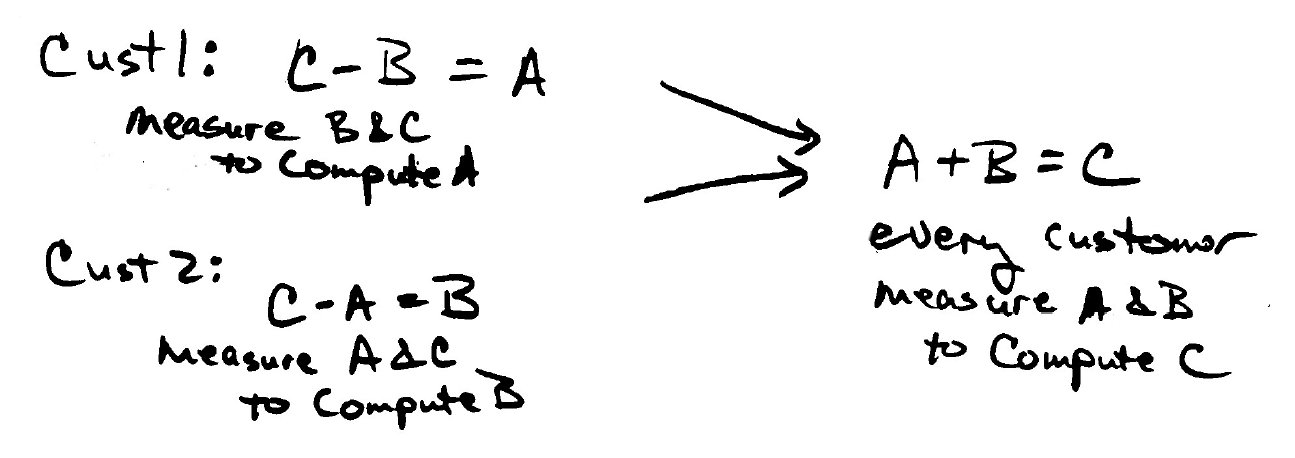 Cust 1: C - B = A
measure B & C
to compute A
Cust 2:
C - A = B
measure A & C
to compute B
A + B = C
every customor
measure A & B
to compute C